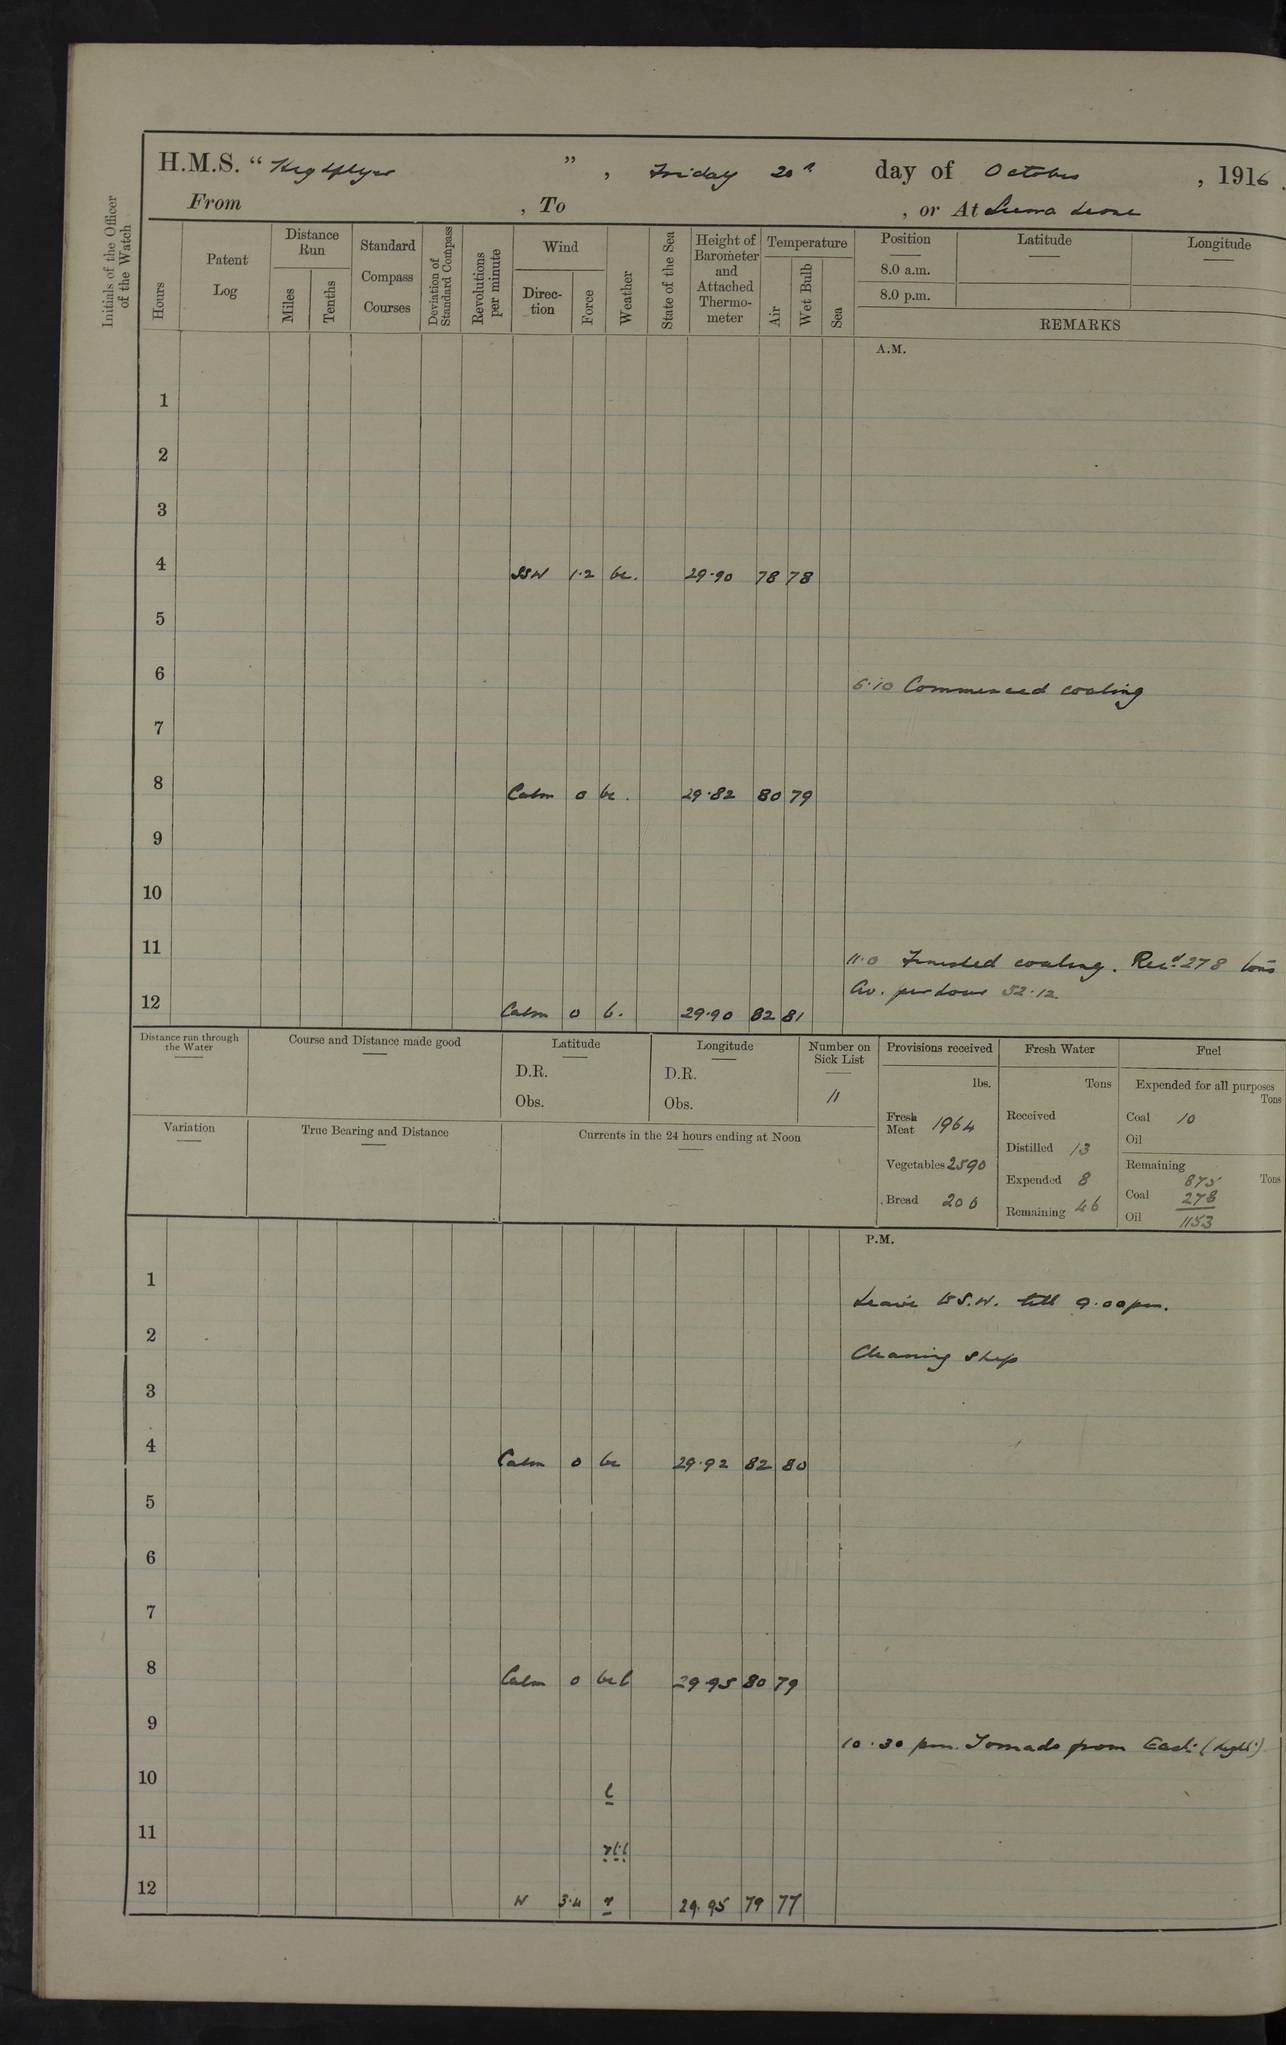 H.M.S. “ Highflyer ” , Friday 20th day of October , 1916.
From , To , or At Sierra Leone
Initials of the Officer of the Watch
Hours
Patent Log
Distance Run
Miles
Tenths
Standard Compass Courses
Deviation of Standard Compass
Revolutions per minute
Wind
Direc-tion
Force
Weather
State of the Sea
Height of Barometer and Attached Thermo-meter
Temperature
Air
Wet Bulb
Sea
Position Latitude Longitude
8.0 a.m.
8.0 p.m.
REMARKS
A.M.
1
2
3
4 SSW 1.2 bc. 29.90 78 78
5
6
6.10 Commenced coaling
7
8 Calm 0 bc. 29.82 80 79
9
10
11
11.0 Finished coaling. Recd. 278 tons
Av. per hour 52.12
12 Calm 0 b. 29.90 82 81
Distance run through the Water
Course and Distance made good
Latitude
D.R.
Obs.
Longitude
D.R.
Obs.
Number on Sick List
11
Provisions received
lbs.
Fresh Meat 1964
Vegetables 2590
Bread 200
Fresh Water
Tons
Received
Distilled 13
Expended 8
Remaining 46
Fuel
Expended for all purposes
Tons
Coal 10
Oil
Remaining
Tons
875
Coal 278
Oil 1153
Variation
True Bearing and Distance
Currents in the 24 hours ending at Noon
P.M.
1
Leave to S.W. till 9.00pm.
2
Cleaning ship
3
4 Calm 0 bc 29.92 82 80
5
6
7
8 Calm 0 bcl 29.95 80 79
9
10.30 pm. Tornado from East (light)
10 l
11 rtl
12 N 3.4 r 29.95 79 77